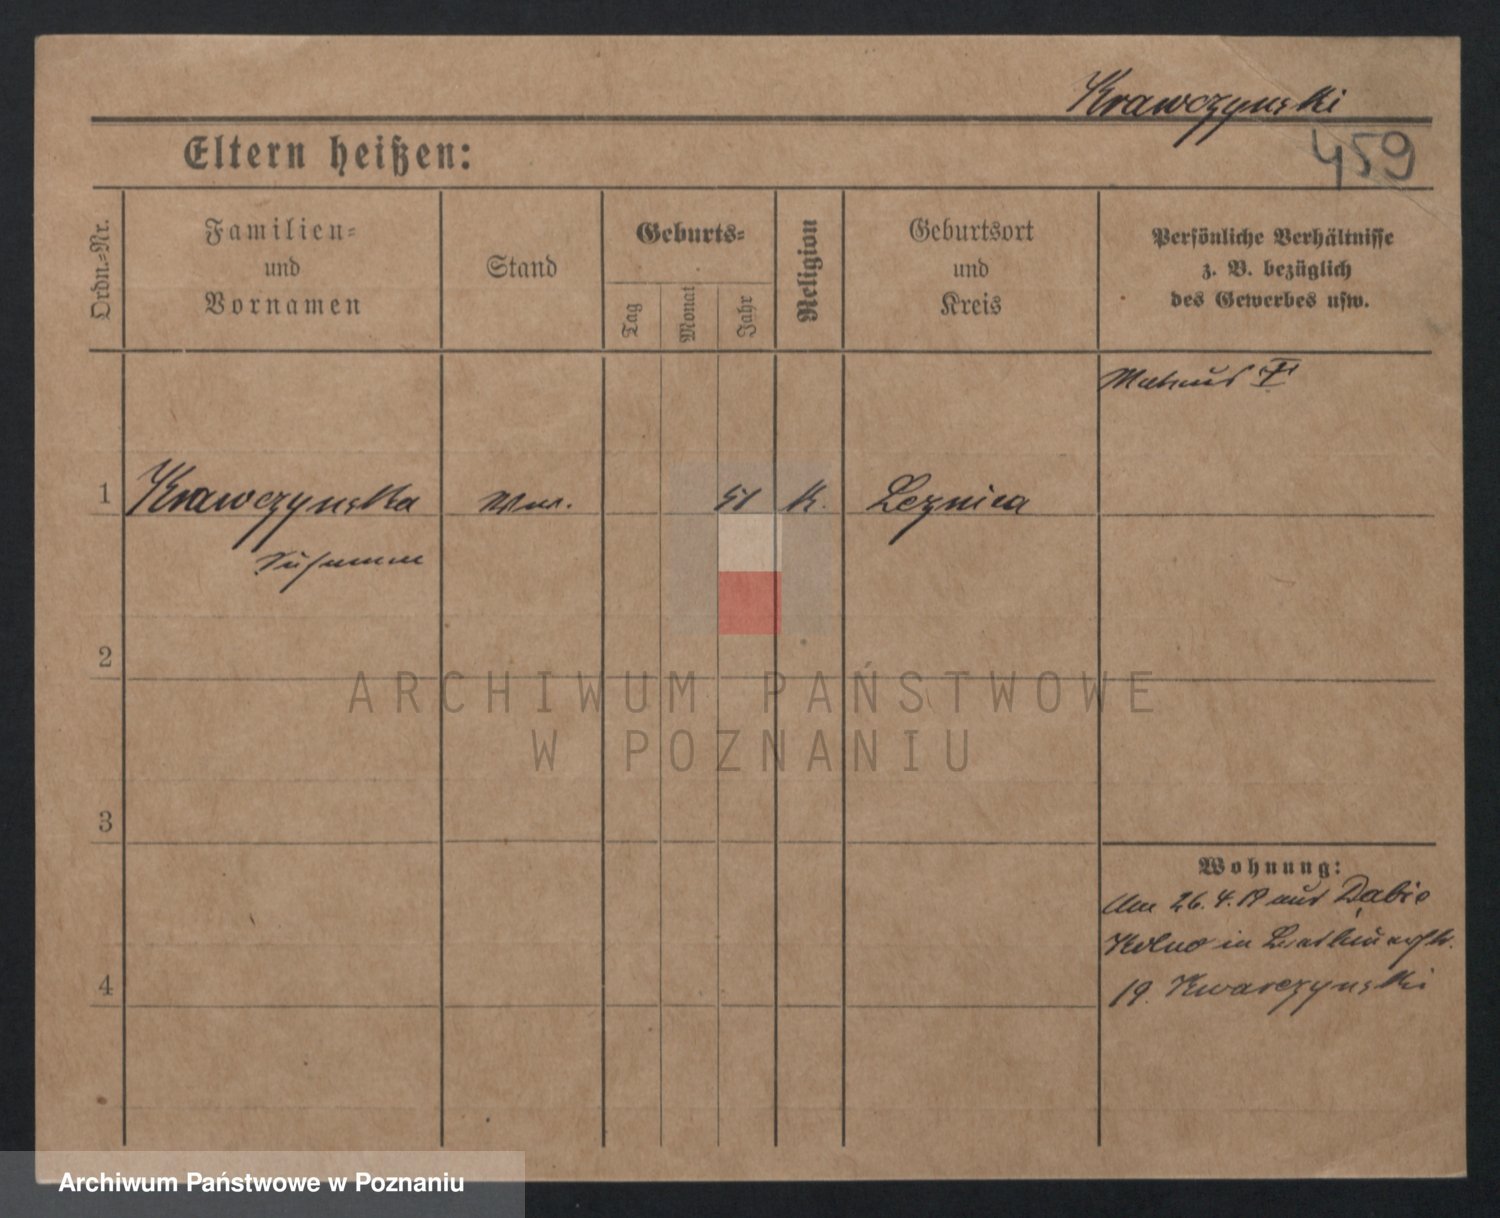 Krawczynski
Eltern heißen:
459
Ordn.-Nr.
Familien-
und
Vornamen
Stand
Geburts-
Tag
Monat
Jahr
Religion
Geburtsort
und
Kreis
Persönliche Verhältnisse
z. B. bezüglich
des Gewerbes usw.
1
Krawczynska
Ww.
51
K.
Leznica
2
ARCHIWUM PAŃSTWOWE
W POZNANIU
3
Wohnung:
Am 26.4.19 aus
in
4
19. Kwarczynski
Archiwum Państwowe w Poznaniu